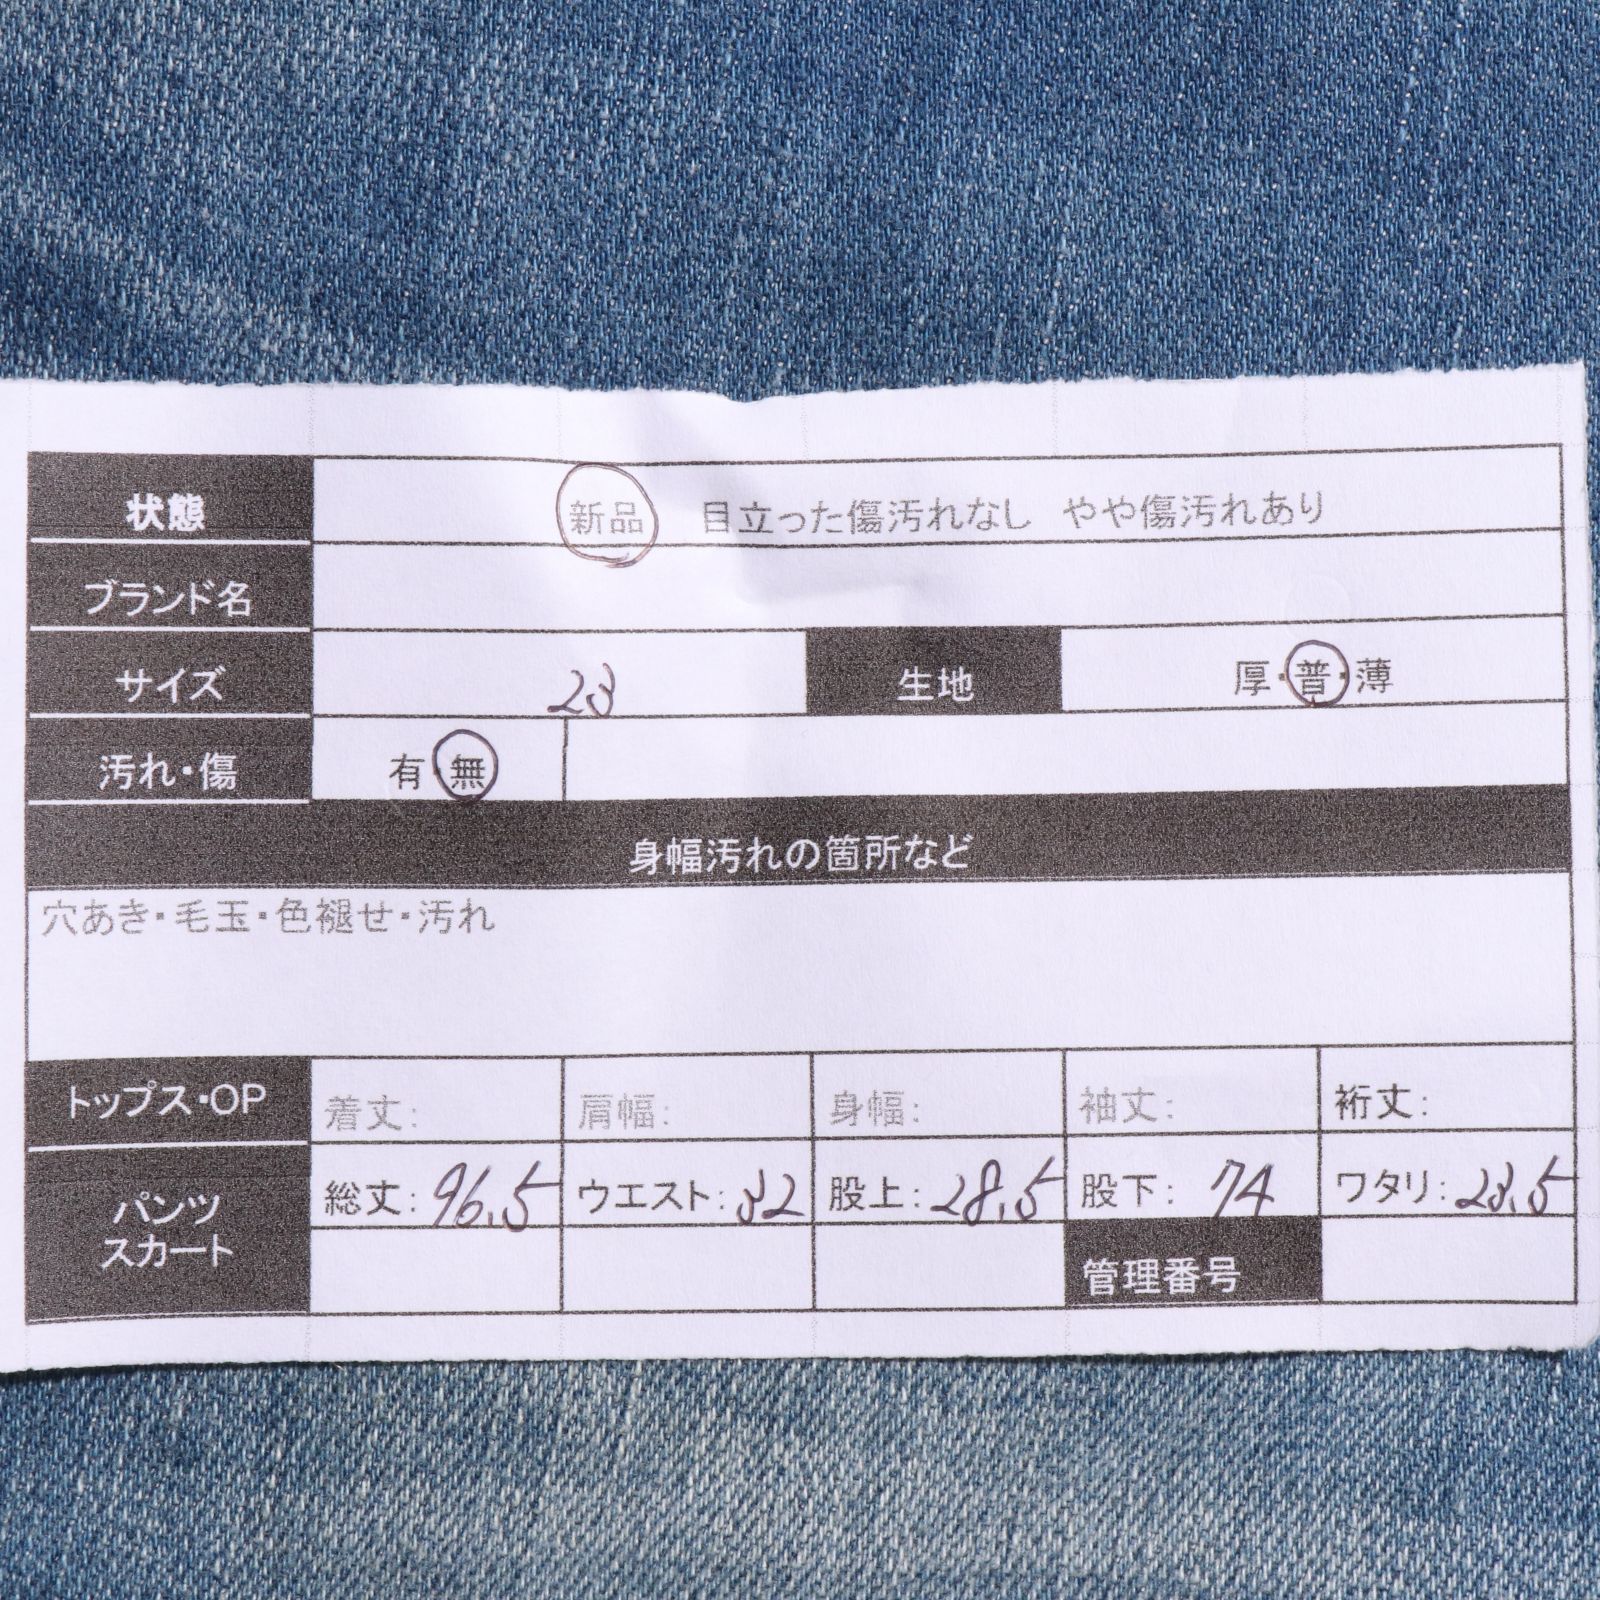 状態 新品 目立った傷汚れなし やや傷汚れあり
ブランド名
サイズ 23 生地 厚・普・薄
汚れ・傷 有・無
身幅汚れの箇所など
穴あき・毛玉・色褪せ・汚れ
トップス・OP 着丈: 肩幅: 身幅: 袖丈: 裄丈:
パンツ
スカート
総丈: 96.5 ウエスト: 32 股上: 28.5 股下: 74 ワタリ: 23.5
管理番号